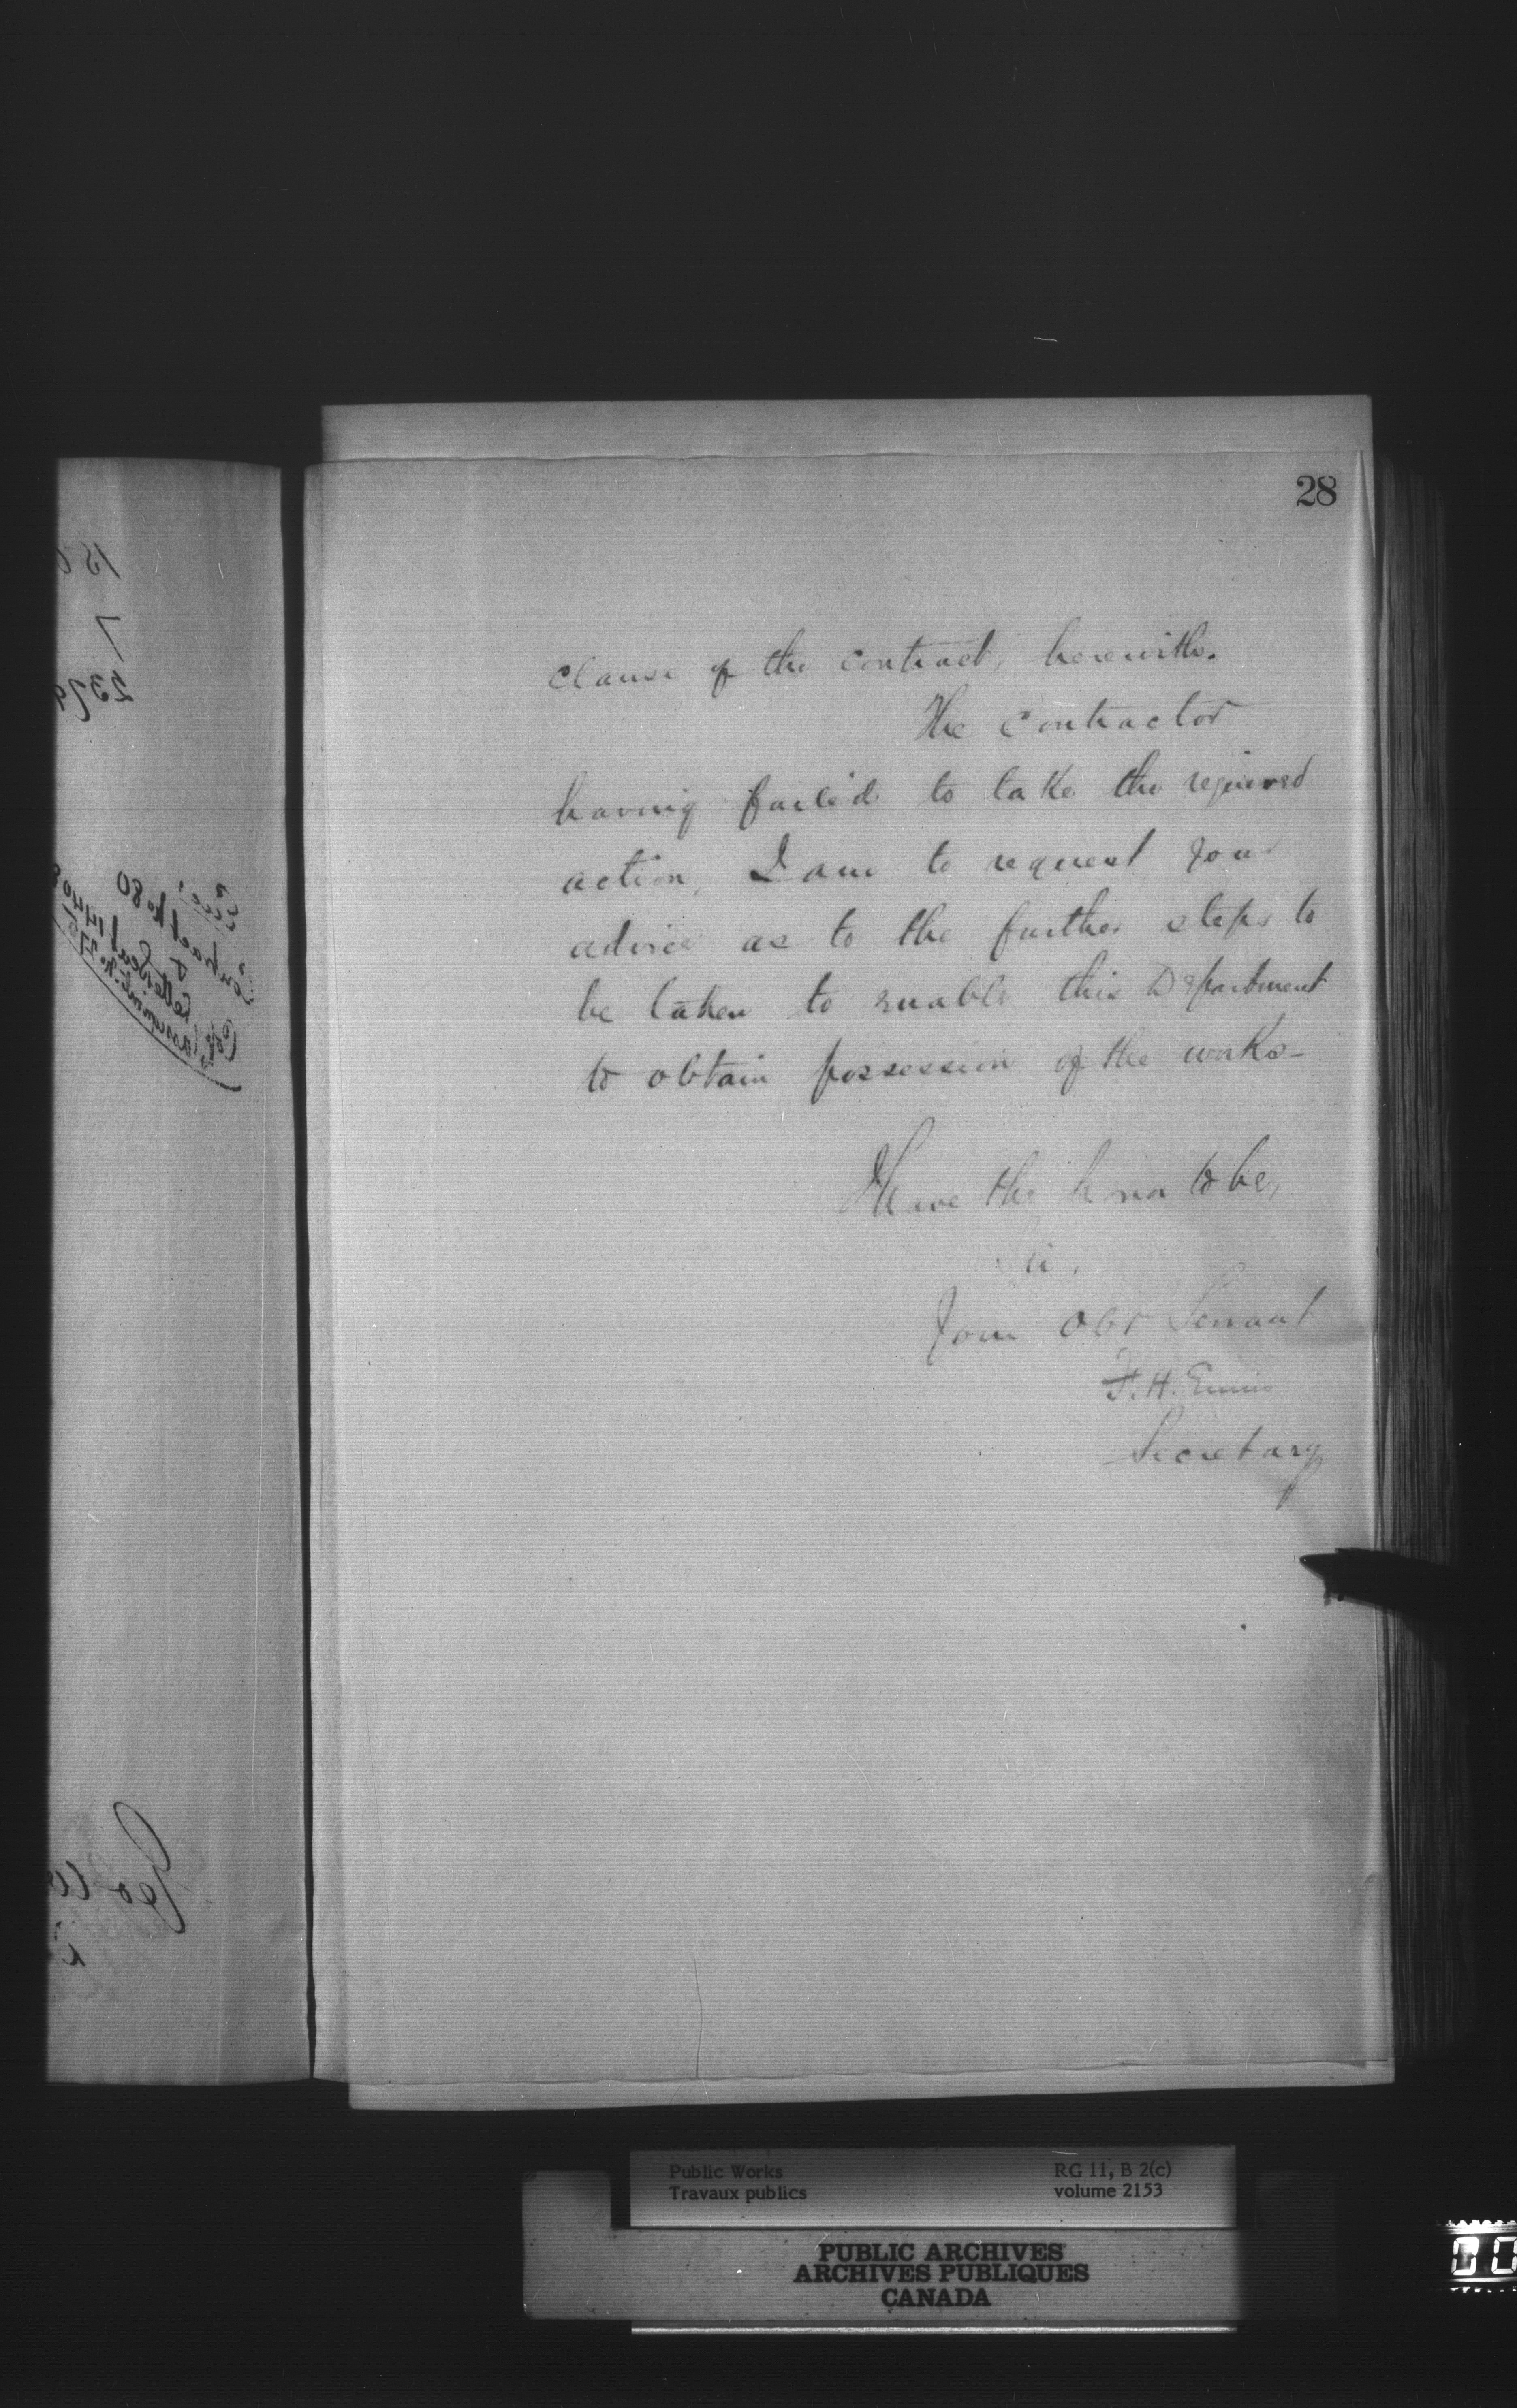 28
clause of the contract, herewith.
The Contractor
having failed to take the required
action, I am to request your
advice as to the further steps to
be taken to enable this Department
to obtain possession of the works-
I have the honor to be,
Sir,
Your Obt Servant
F. H. Ennis
Secretary
Public Works
Travaux publics
RG 11, B 2(c)
volume 2153
PUBLIC ARCHIVES
ARCHIVES PUBLIQUES
CANADA